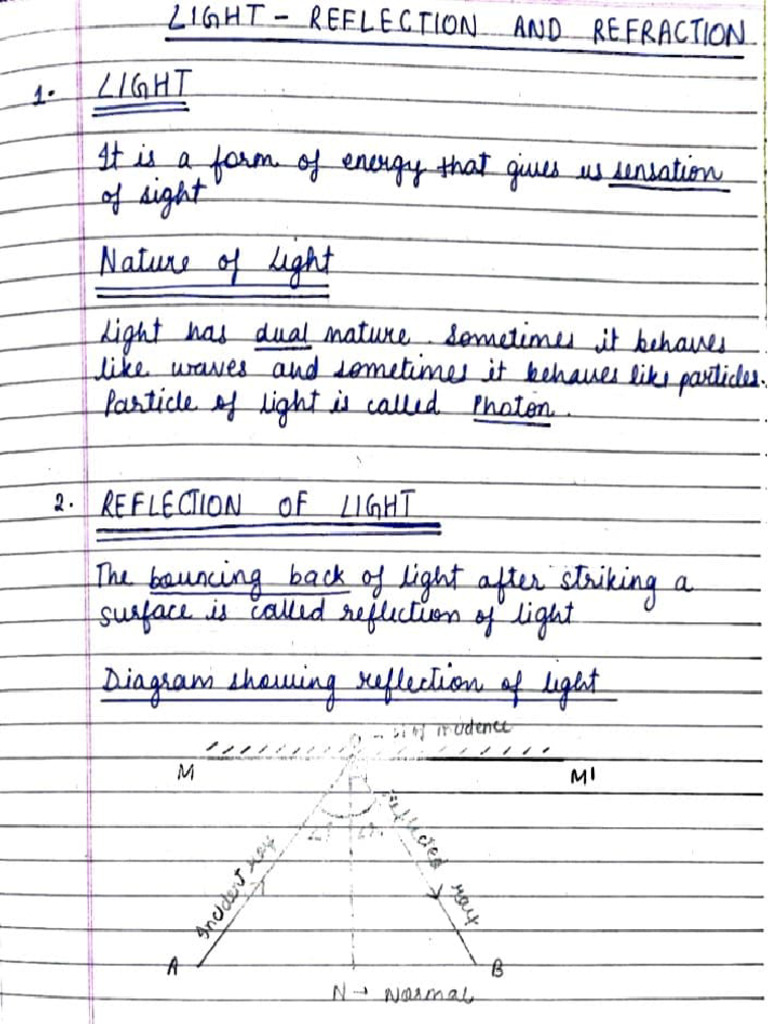 LIGHT - REFLECTION AND REFRACTION
1. LIGHT
It is a form of energy that gives us sensation
of sight
Nature of Light
Light has dual nature. Sometimes it behaves
like waves and sometimes it behaves like particles.
Particle of light is called Photon.
2. REFLECTION OF LIGHT
The bouncing back of light after striking a
surface is called reflection of light
Diagram showing reflection of light
of incidence
M M'
∠i ∠r
Incident ray reflected ray
A B
N → Normal